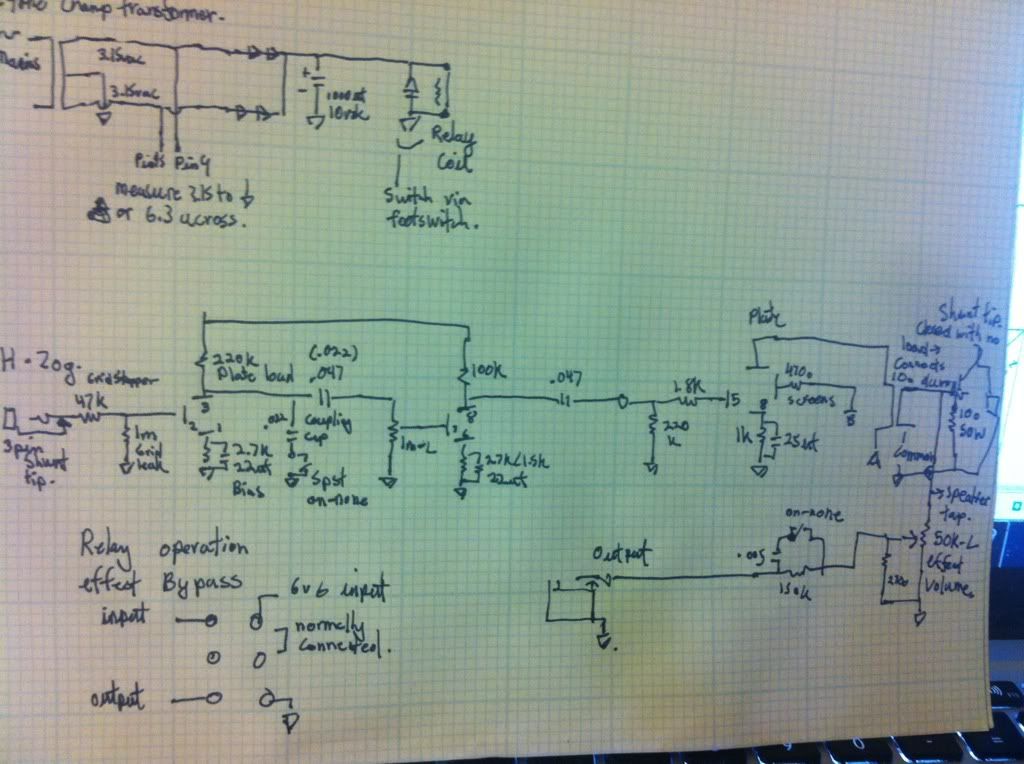 Champ transformer.
Mains
3.15vac
3.15vac
+
-
1000uf
10vdc
Pin5 Pin4
Relay
Coil
measure 3.15 to
or 6.3 across.
Switch via
footswitch.
H. Zog.
Gridstopper
47k
3pin
Shunt
tip.
1m
Grid
leak
220k
Plate load
3
2
1
2.7k
22uf
Bias
(.022)
.047
Coupling
cap
.022
Spst
on-none
1m-L
100k
2.7k/1.5k
22uf
.047
220
k
1.8k
5
Plate
470Ω
screens
8
1k
25uf
B
A
Shunt tip.
Closed with no
load →
Connects
10Ω dummy
10Ω
50W
Common
→ Speaker
tap.
50k-L
effect
Volume.
on-none
.005
150k
Output
Relay operation
effect Bypass
input
6v6 input
normally
connected.
output